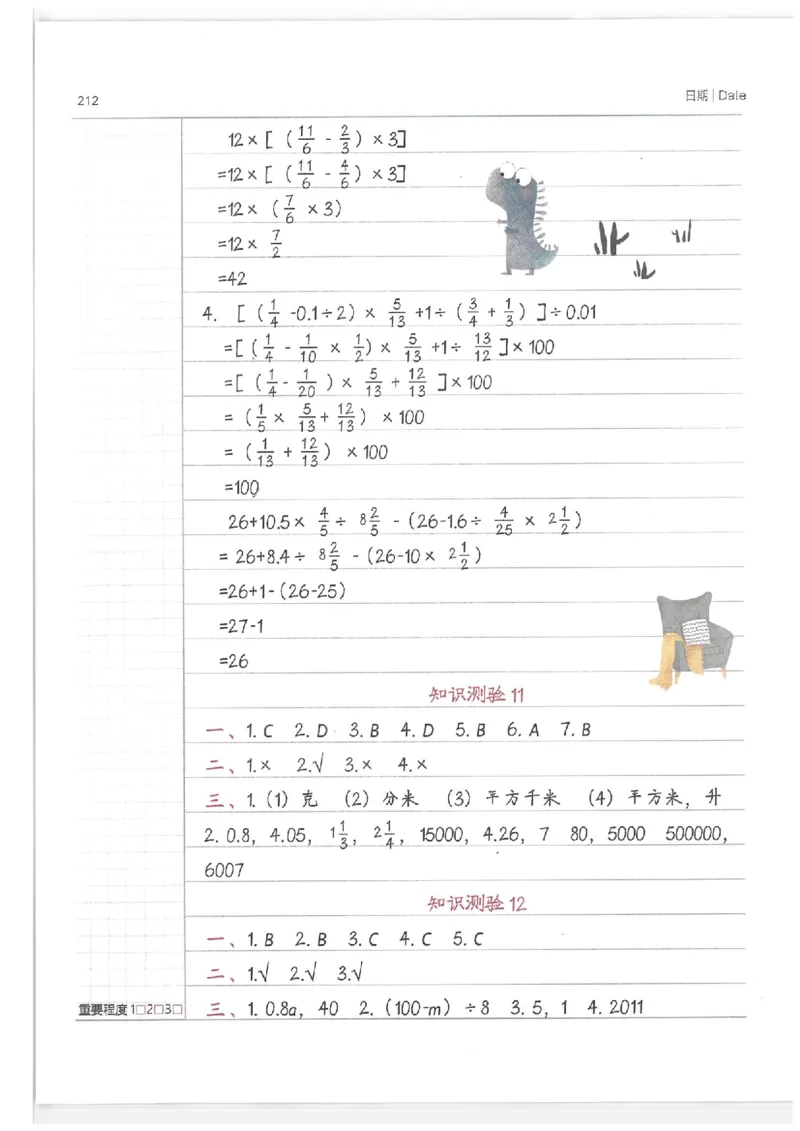 212
日期 | Date
12×[（11/6 - 2/3）×3]
=12×[（11/6 - 4/6）×3]
=12×（7/6 ×3）
=12× 7/2
=42
4. [（1/4 -0.1÷2）× 5/13 +1÷（3/4 + 1/3）]÷0.01
=[（1/4 - 1/10 × 1/2）× 5/13 +1÷ 13/12 ]×100
=[（1/4 - 1/20 ）× 5/13 + 12/13 ]×100
=（1/5 × 5/13 + 12/13）×100
=（1/13 + 12/13）×100
=100
26+10.5× 4/5 ÷ 8 2/5 -（26-1.6÷ 4/25 × 2 1/2）
= 26+8.4÷ 8 2/5 -（26-10× 2 1/2）
=26+1-（26-25）
=27-1
=26
知识测验11
一、1. C 2. D 3. B 4. D 5. B 6. A 7. B
二、1.× 2.√ 3.× 4.×
三、1.（1）克 （2）分米 （3）平方千米 （4）平方米，升
2. 0.8，4.05，1 1/3，2 1/4，15000，4.26，7 80，5000 500000，
6007
知识测验12
一、1. B 2. B 3. C 4. C 5. C
二、1.√ 2.√ 3.√
重要程度 1□2□3□
三、1. 0.8a，40 2.（100-m）÷8 3. 5，1 4. 2011